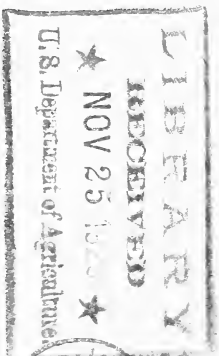 LIBRARY
RECEIVED
★ NOV 25 ★
U.S. Department of Agriculture